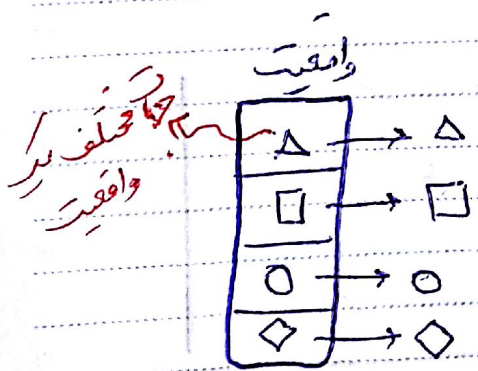 واقعیت
جهات مختلف یک
واقعیت